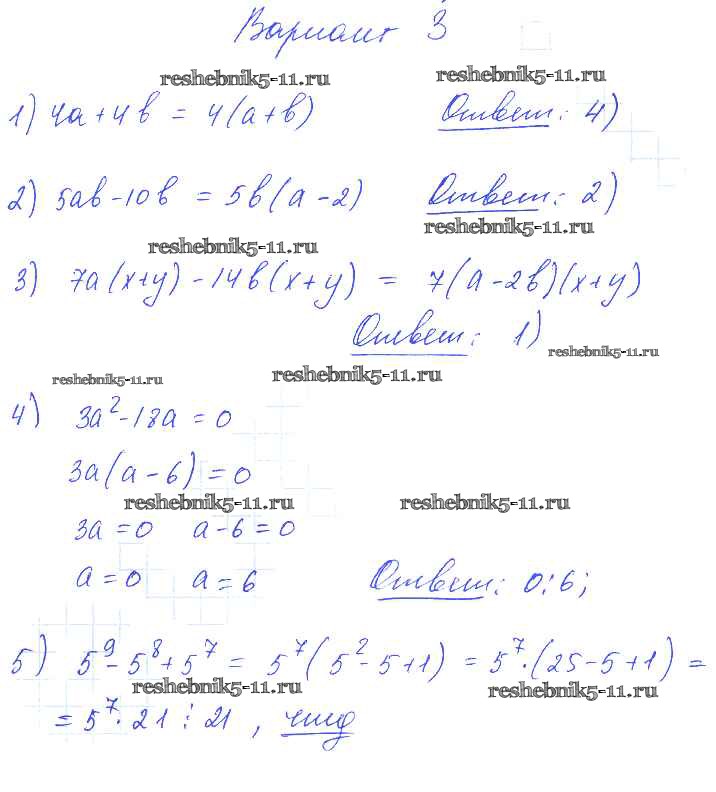 Вариант 3
reshebnik5-11.ru reshebnik5-11.ru
1) 4a+4b = 4(a+b) Ответ: 4)
2) 5ab-10b = 5b(a-2) Ответ: 2)
reshebnik5-11.ru reshebnik5-11.ru
3) 7a(x+y)-14b(x+y) = 7(a-2b)(x+y)
Ответ: 1)
reshebnik5-11.ru reshebnik5-11.ru reshebnik5-11.ru
4) 3a²-18a=0
3a(a-6)=0
reshebnik5-11.ru reshebnik5-11.ru
3a=0 a-6=0
a=0 a=6 Ответ: 0;6;
5) 5⁹-5⁸+5⁷ = 5⁷(5²-5+1) = 5⁷·(25-5+1) =
reshebnik5-11.ru reshebnik5-11.ru
= 5⁷·21⋮21, чтд